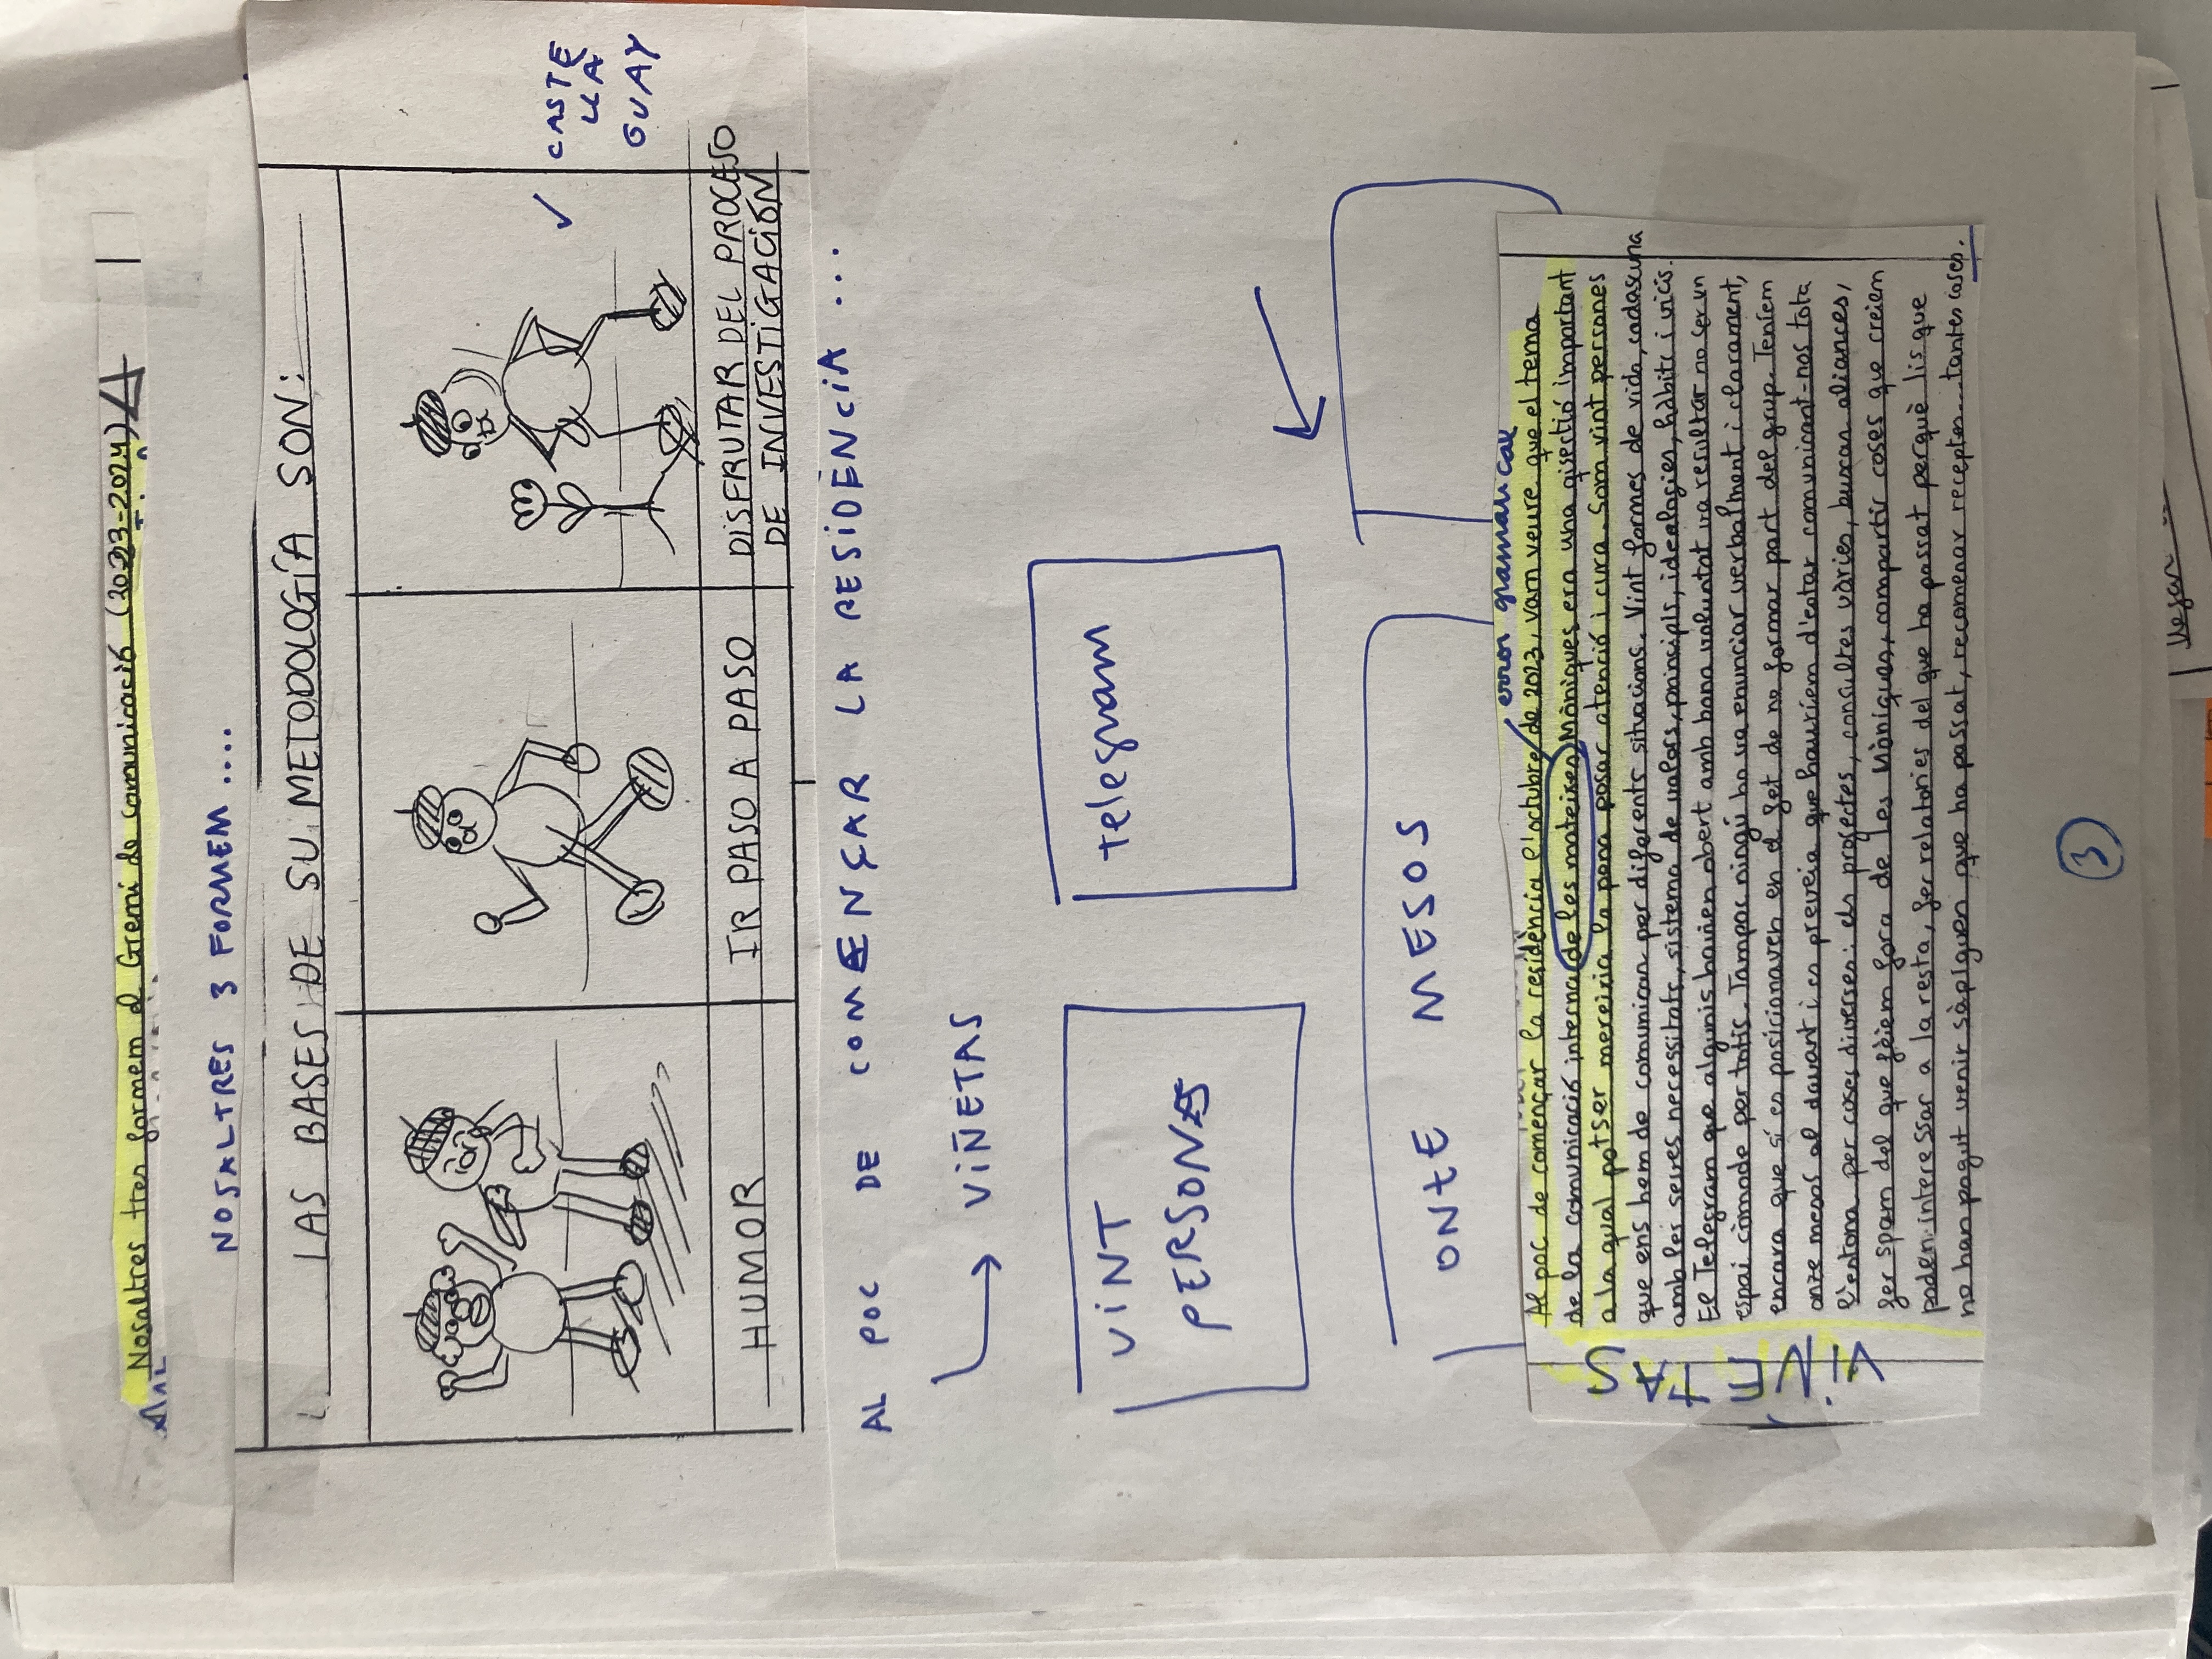 Nosaltres tres formem el Gremi de comunicació (2023-2024)
NOSALTRES 3 FORMEM....
LAS BASES DE SU METODOLOGÍA SON:
HUMOR
IR PASO A PASO
DISFRUTAR DEL PROCESO
DE INVESTIGACIÓN
CASTE
LLÀ
GUAY
AL POC DE COMENÇAR LA RESIDÈNCIA ...
VIÑETAS
VINT
PERSONES
telegram
ONZE MESOS
error gramatical
Al poc de començar la residència el octubre de 2023, vam veure que el tema
de la comunicació interna de les mateixes Mòniques era una qüestió important
a la qual potser mereixia la pena posar atenció i cura. Som vint persones
que ens hem de comunicar per diferents situacions. Vint formes de vida, cadascuna
amb les seves necessitats, sistema de valors, principis, ideologies, hàbits i vicis.
El Telegram que algunis havien obert amb bona voluntat va resultar no ser un
espai còmode per totis. Tampoc ningú ho va enunciar verbalment i clarament,
encara que sí es posicionaven en el fet de no formar part del grup. Teníem
onze mesos al davant i es preveia que hauríem d'estar comunicant-nos tota
l'estona per coses diverses: els projectes, consultes vàries, buscar aliances,
fer spam del que fèiem fora de les Mòniques, compartir coses que crèiem
poden interessar a la resta, fer relatories del que ha passat perquè lis que
no han pogut venir sàpiguen que ha passat, recomenar receptes... tantes coses.
VIÑETAS
3